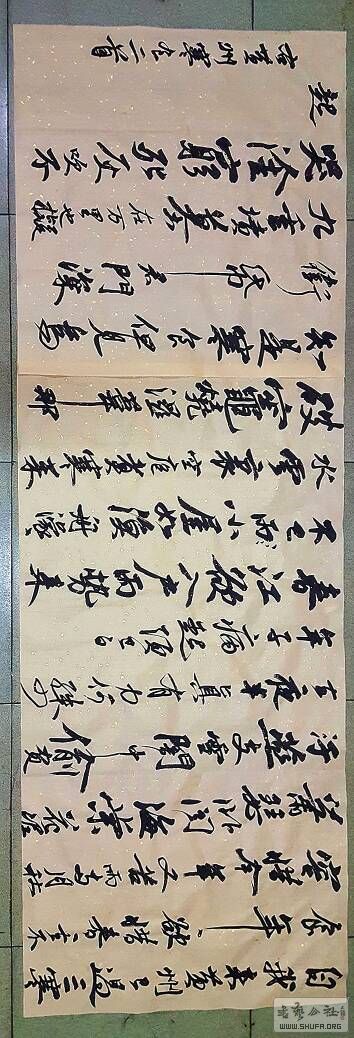 自我來黃州已過三寒
食年〻欲惜春春去不
容惜今年又苦雨兩月秋
蕭瑟卧聞海棠花泥
汙燕支雪闇中偷負
去夜半真有力何殊少
年子病起頭已白
春江欲入戶雨勢來
不已雨小屋如漁舟濛〻
水雲裏空庖煮寒菜
破竈燒濕葦那
知是寒食但見烏
銜帋君門深
九重墳墓在万里也擬
哭塗窮死灰吹不
起
右黃州寒食二首
WWW.SHUFA.ORG